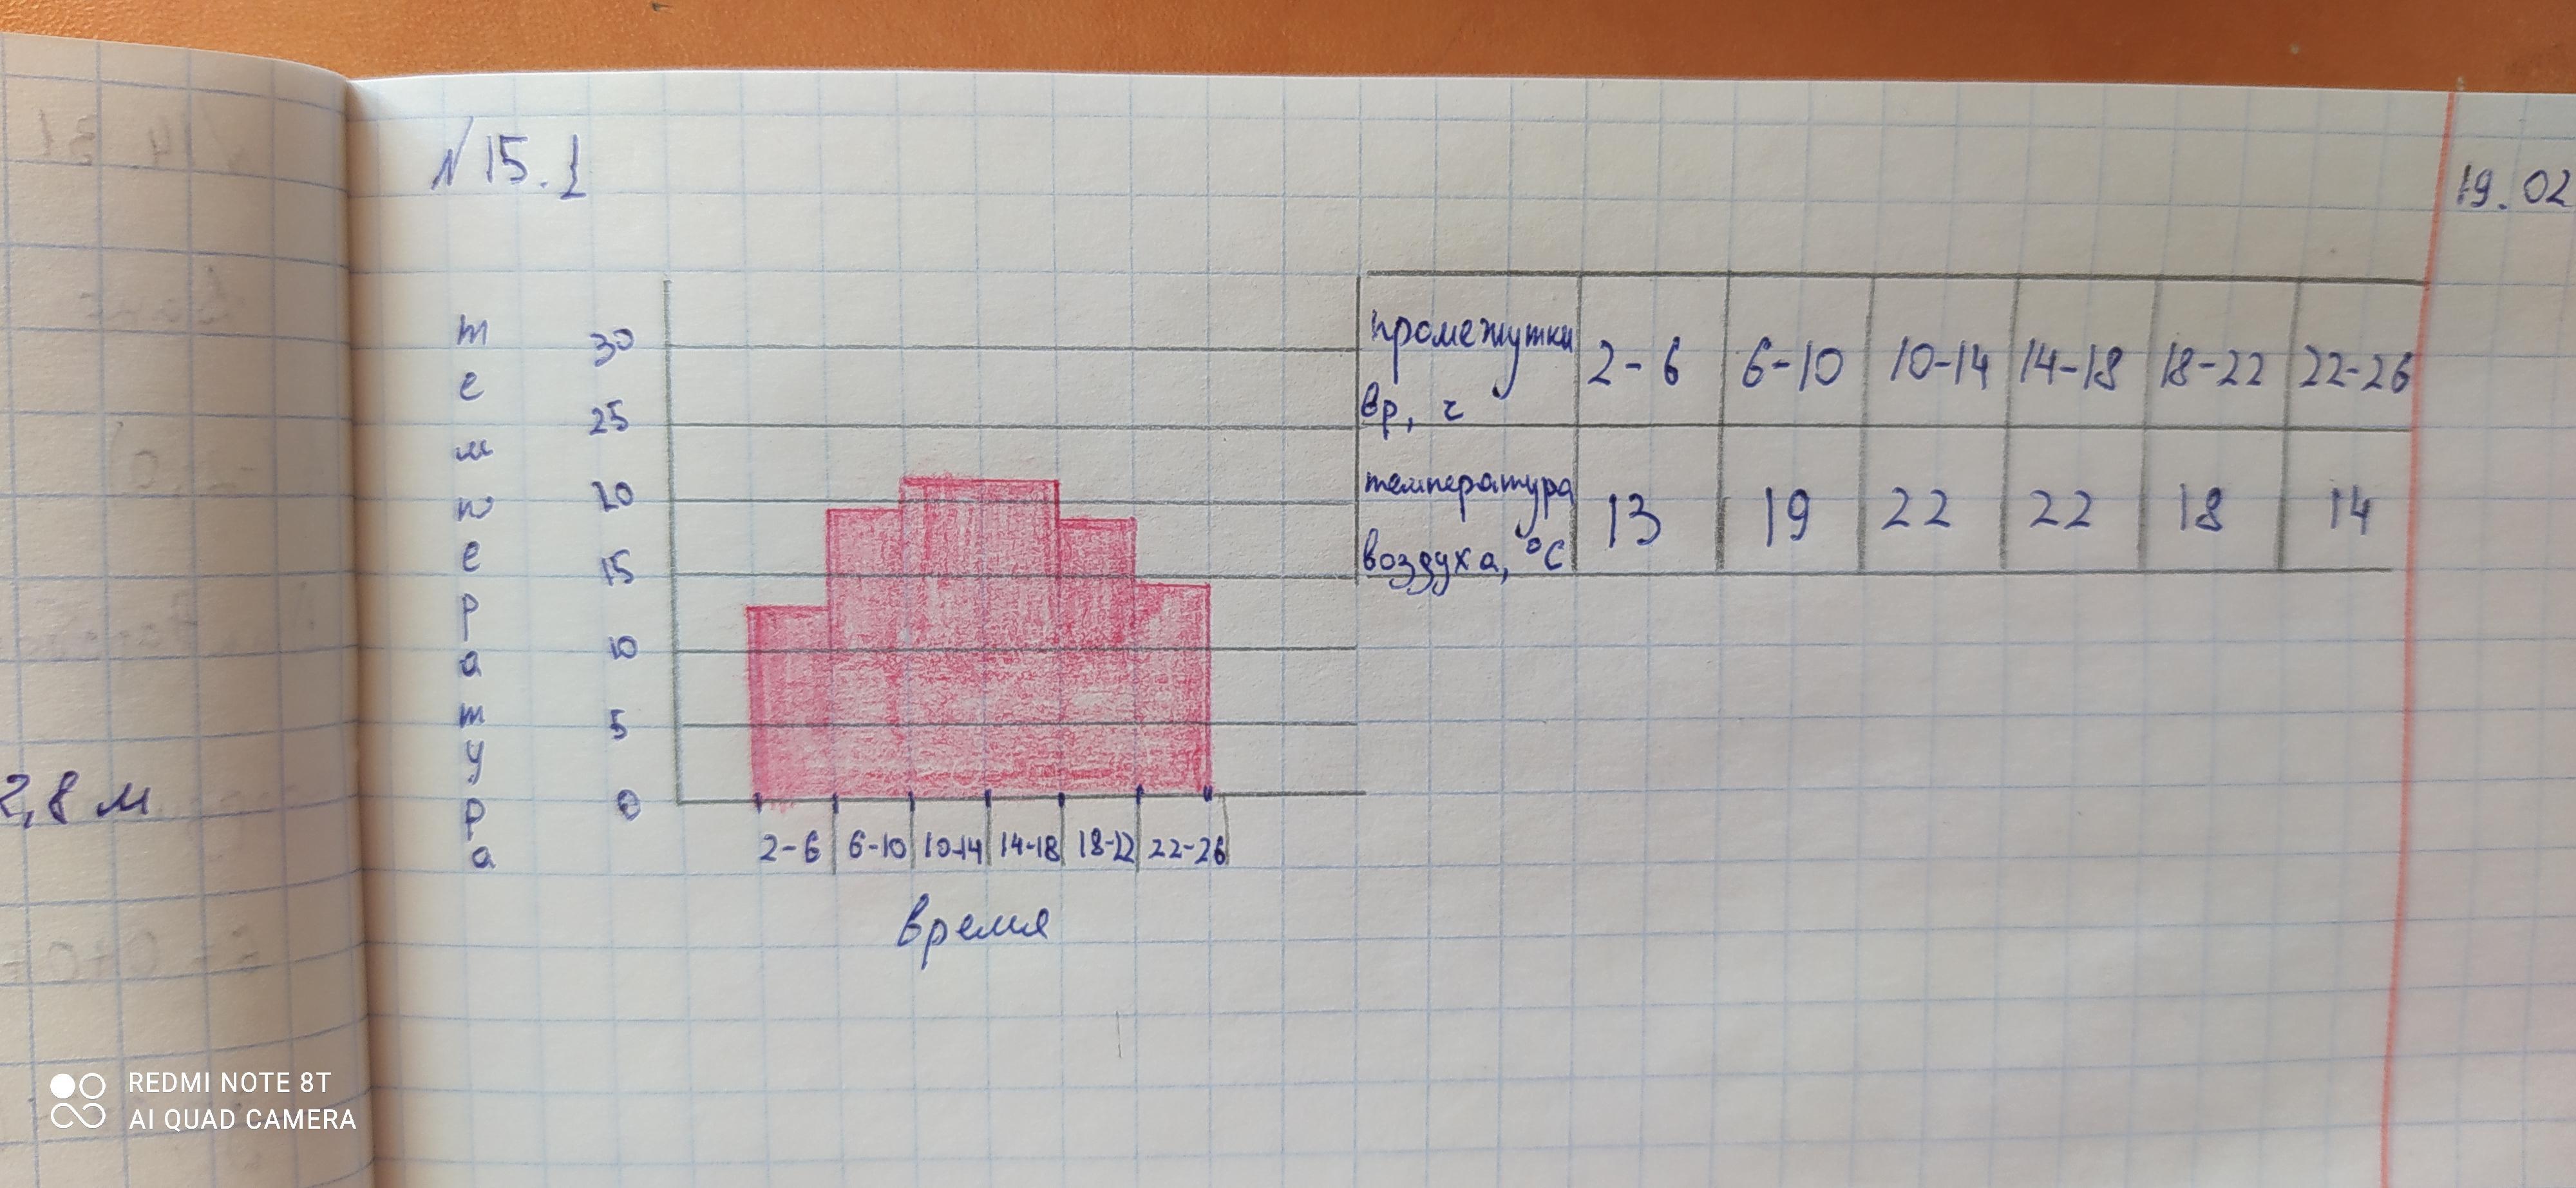 N 15.1
19.02
температура
30
25
20
15
10
5
0
2-6 6-10 10-14 14-18 18-22 22-26
время
промежутки вр, ч 2-6 6-10 10-14 14-18 18-22 22-26
температура воздуха, °C 13 19 22 22 18 14
2,8 м
REDMI NOTE 8T
AI QUAD CAMERA